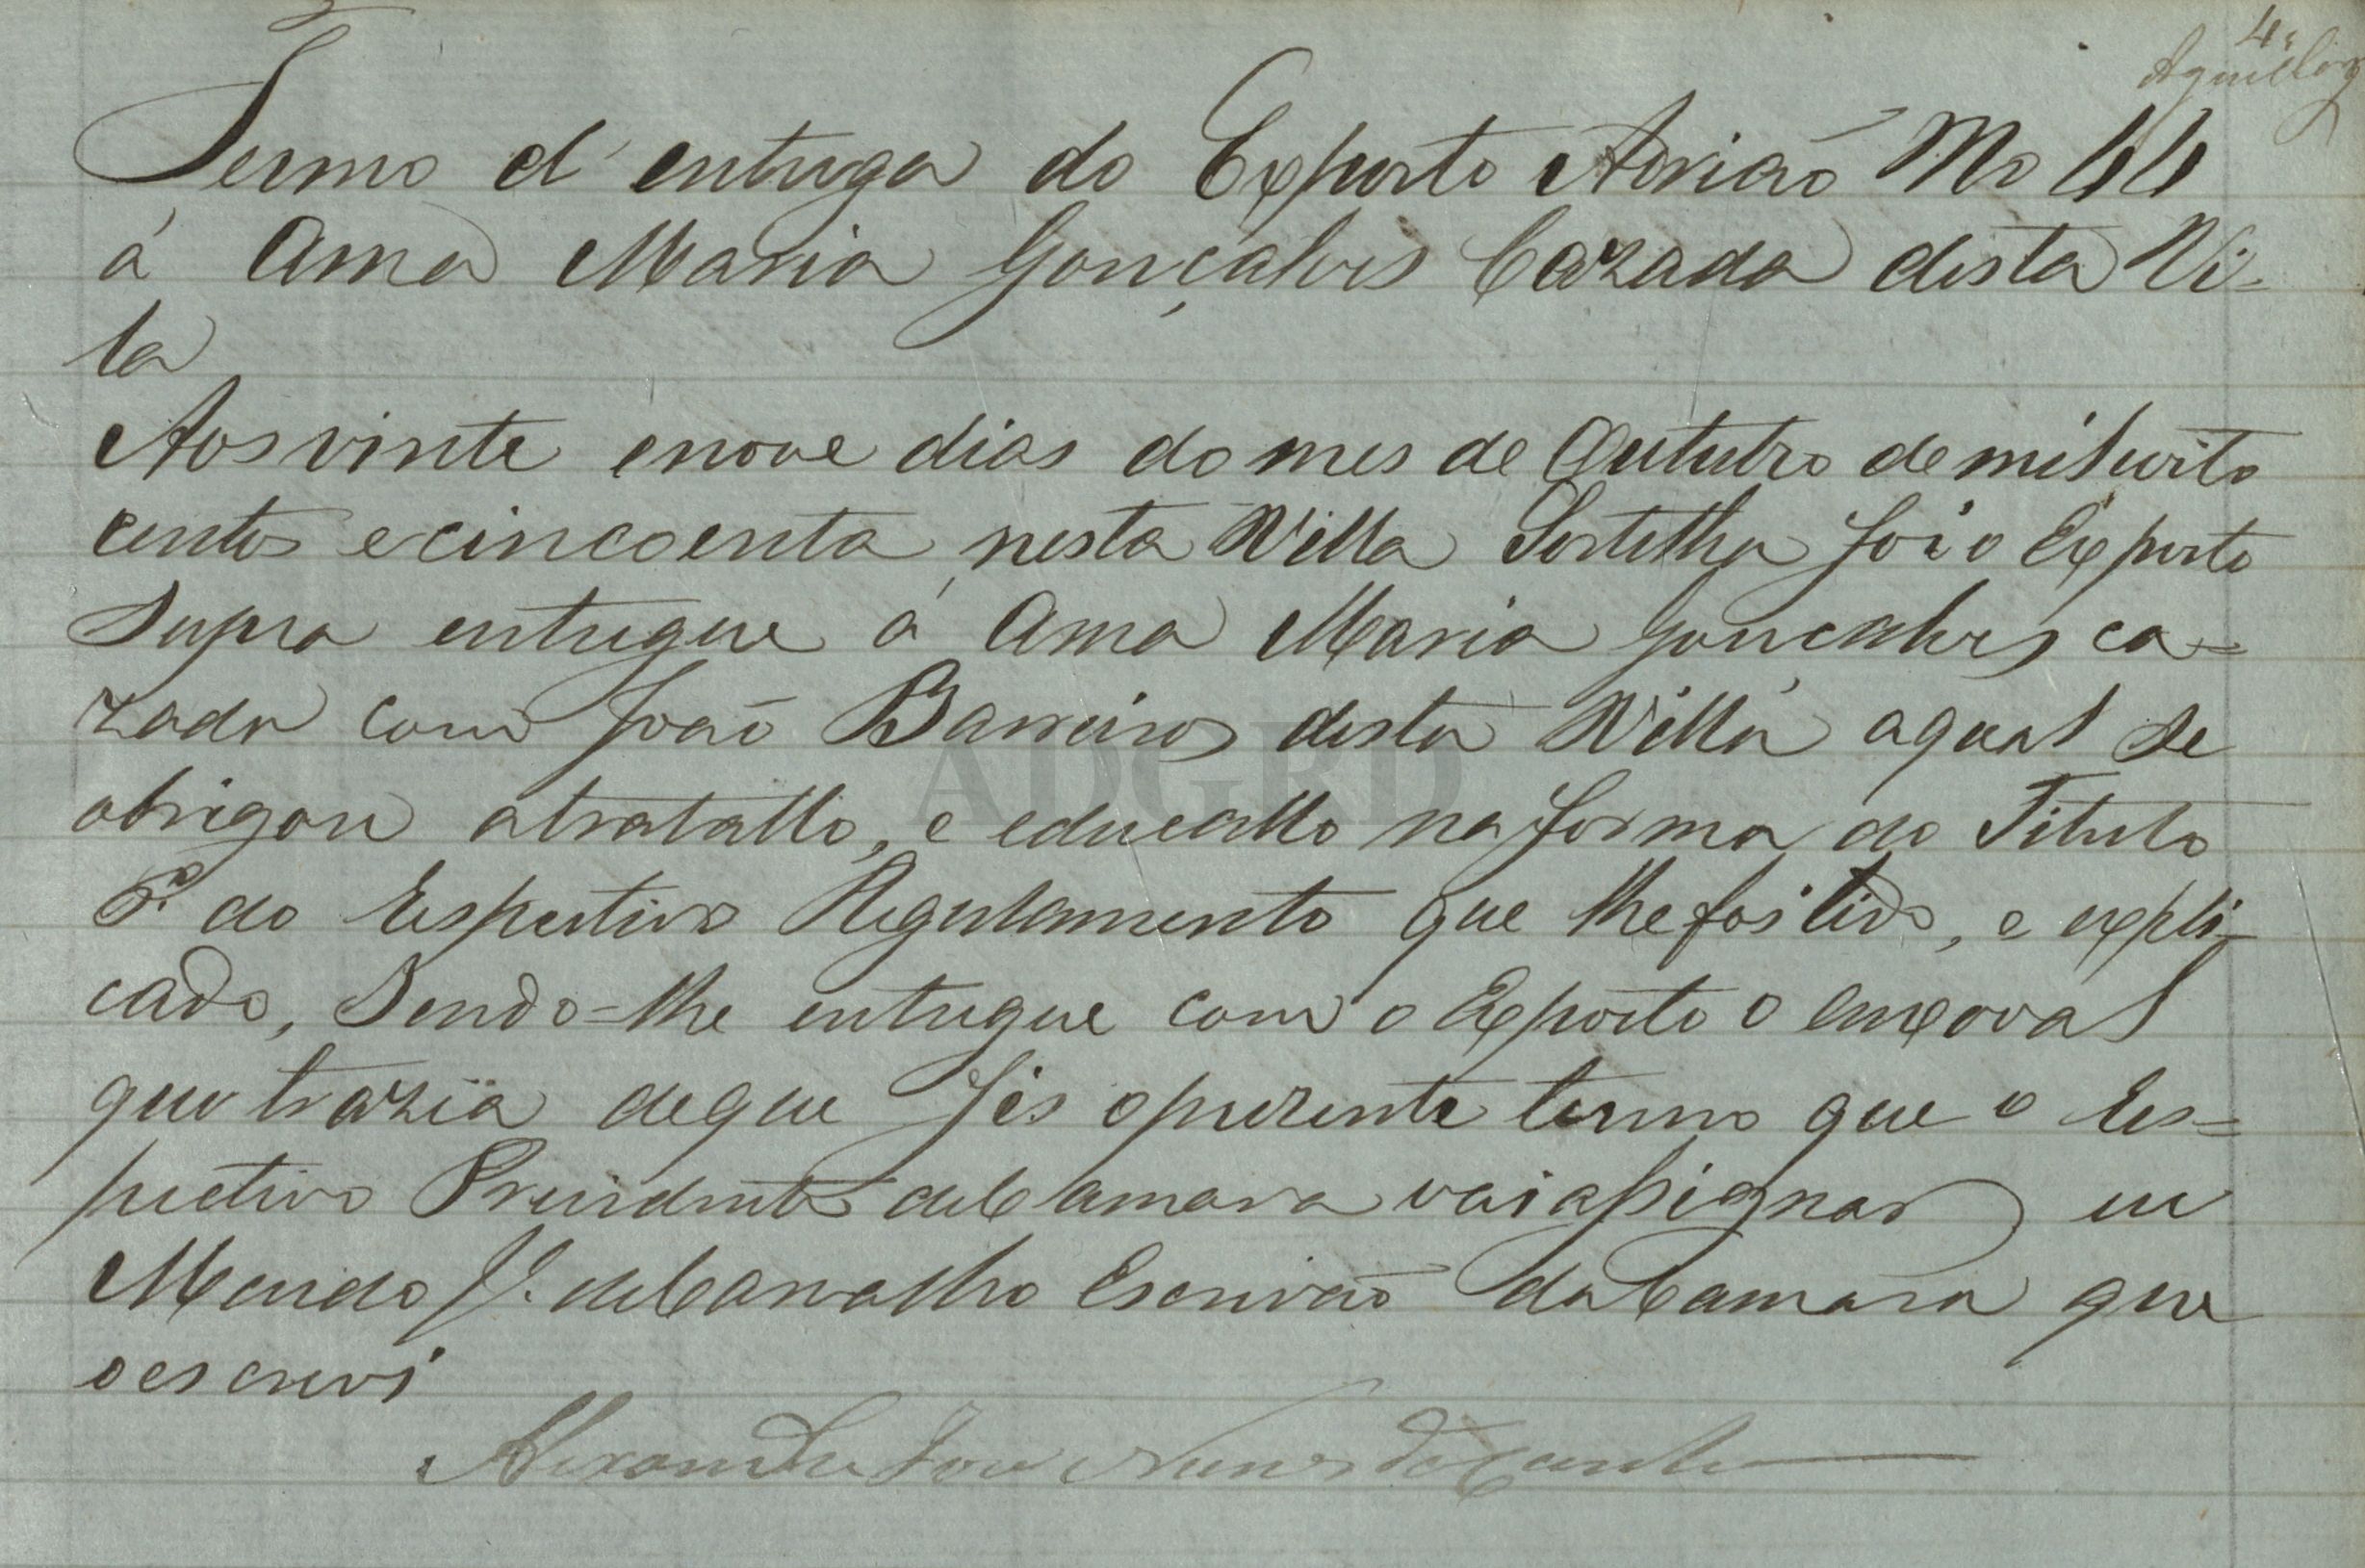 4
Termo d'entrega do Exposto Adrião No 44
á Ama Maria Gonçalves Cazada desta Vi-
la
Aos vinte e nove dias do mes de Outubro de mil wito
centos e cincoenta nesta Villa Sortelha foi o Exposto
Supra entregue á Ama Maria Gonçalves ca=
zada com João Barreiros desta Villa a qual se
obrigou a tratallo, e educallo na forma do Titulo
do Respectivo Regulamento que lhe foi lido, e expli-
cado, Sendo=lhe entregue com o Exposto o enxoval
que trazia de que fis o prezente termo que o Res=
pectivo Prezidente da Camara vai assignar eu
Mendo J. de Carvalho Escrivão da Camara que
o escrevi
Alexandre Jose Nunes da Cunha
ADGRD